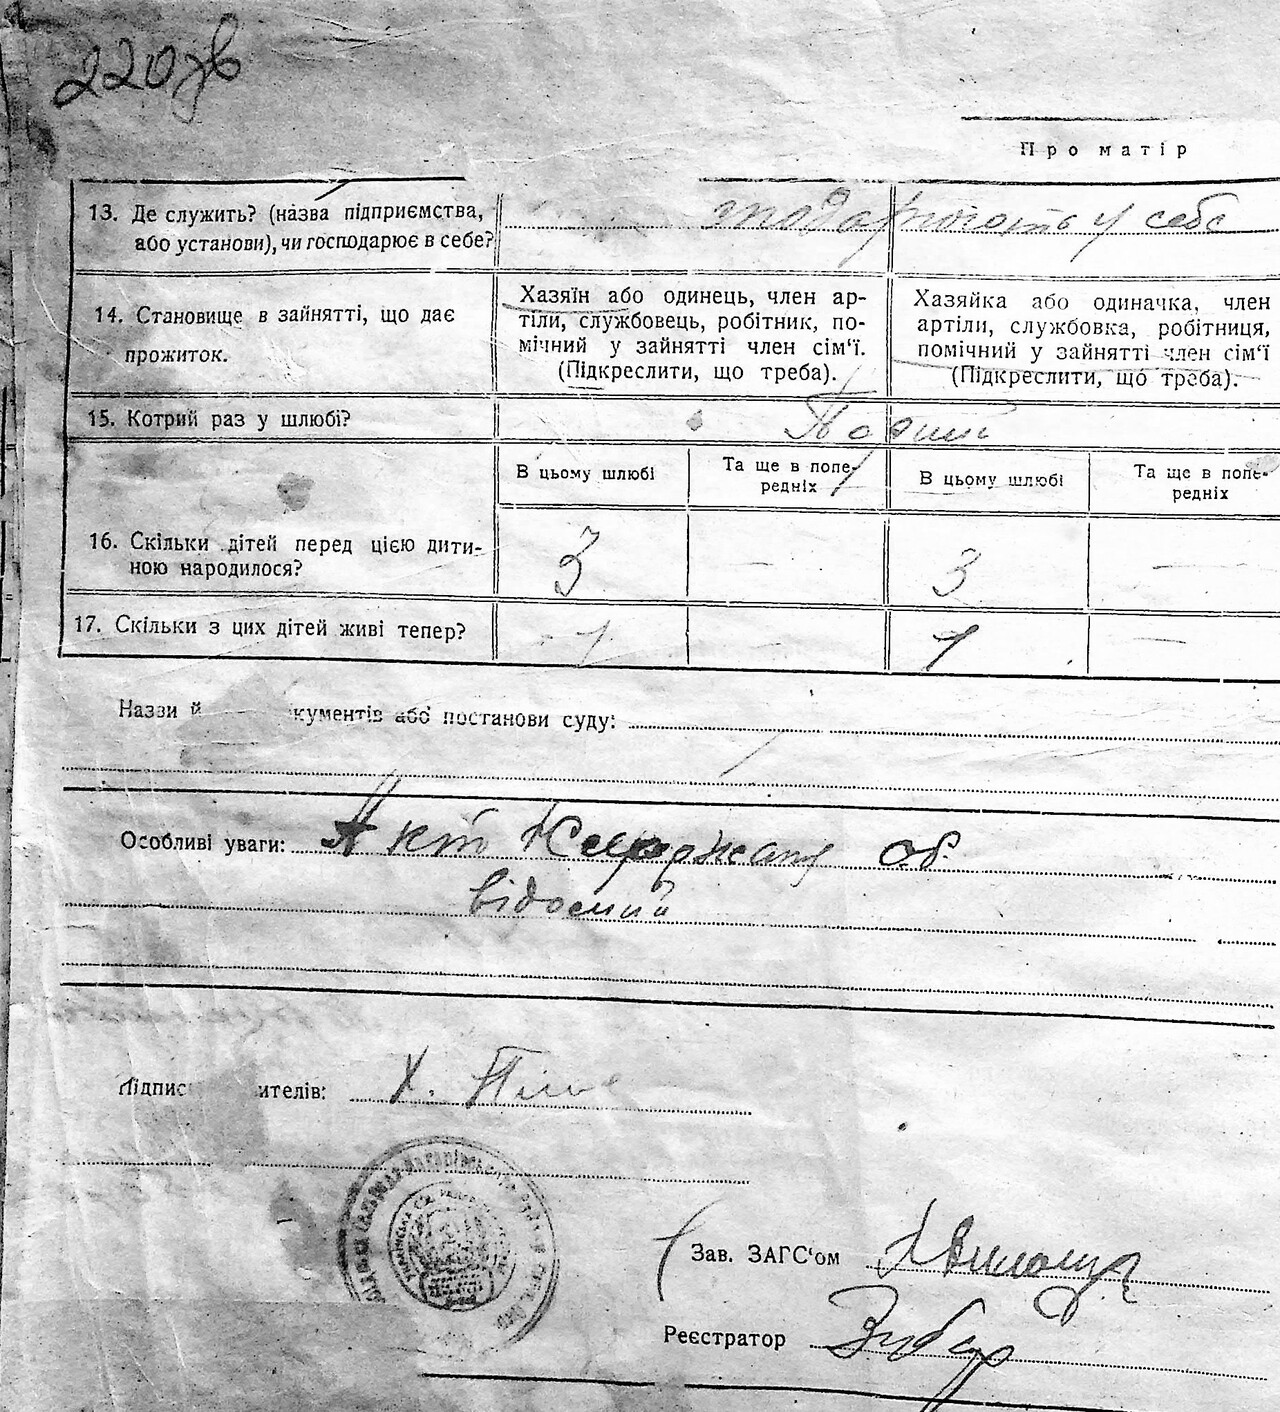 220зв
Про матір
13. Де служить? (назва підприємства,
або установи), чи господарює в себе?
господарюють у себе
14. Становище в зайнятті, що дає
прожиток.
Хазяїн або одинець, член ар-
тіли, службовець, робітник, по-
мічний у зайнятті член сім‘ї.
(Підкреслити, що треба).
Хазяйка або одиначка, член
артіли, службовка, робітниця,
помічний у зайнятті член сім‘ї
(Підкреслити, що треба).
15. Котрий раз у шлюбі?
В цьому шлюбі
Та ще в попе-
редніх
В цьому шлюбі
Та ще в попе-
редніх
16. Скільки дітей перед цією дити-
ною народилося?
3 — 3 —
17. Скільки з цих дітей живі тепер?
1 — 1 —
Назви й кументів або постанови суду:
Особливі уваги: Акт
відомий
Підпис ителів: Х.
Зав. ЗАГС‘ом
Реєстратор Зубар